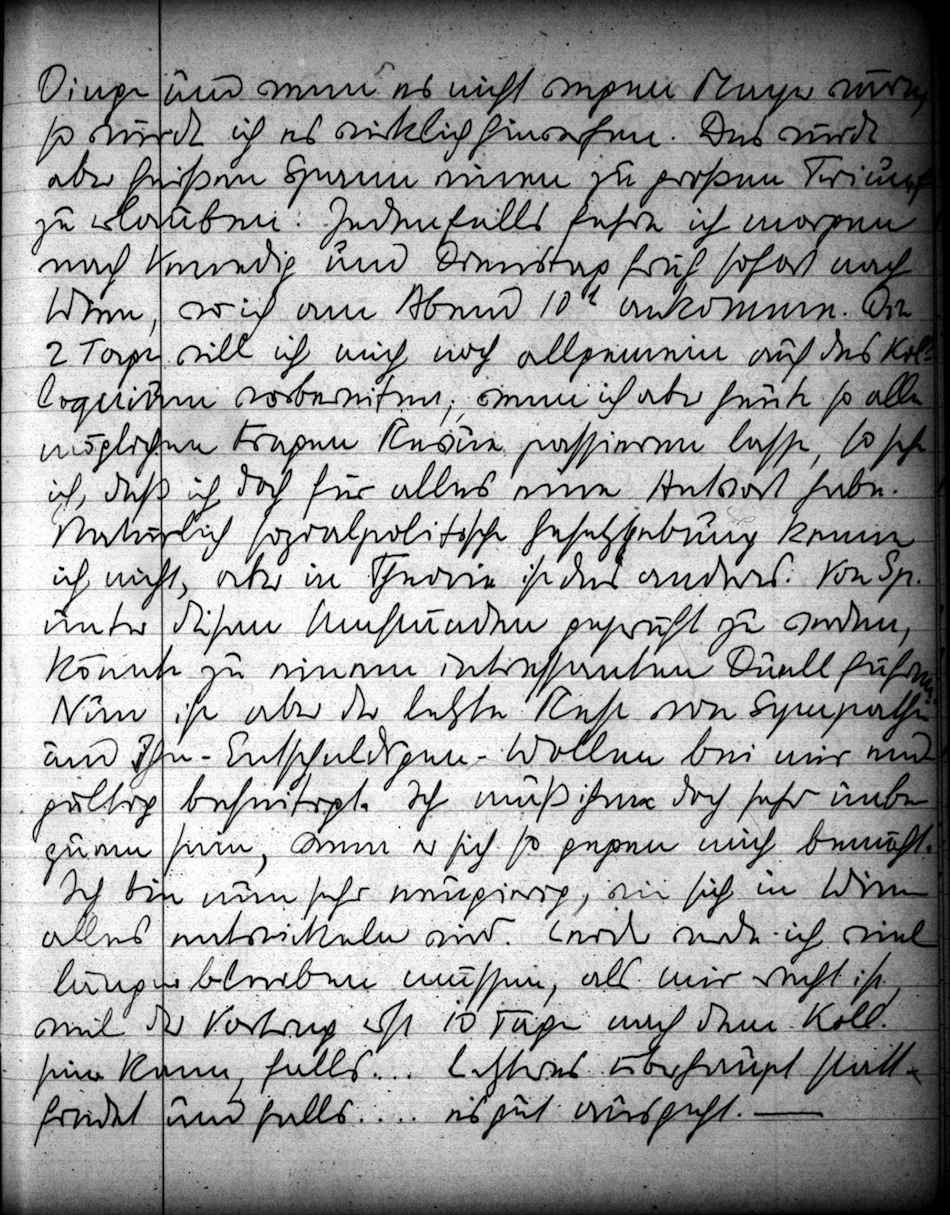 Dinge und wenn es nicht wegen Mayer wäre,
so würde ich es wirklich hinwerfen. Das würde
aber heißen Spann einen zu großen Triumpf
zu erlauben. Jedenfalls fahre ich morgen
nach Venedig und Dienstag früh sofort nach
Wien, wo ich am Abend 10h ankomme. Die
2 Tage will ich mich noch allgemein auf das Kol-
loquium vorbereiten; wenn ich aber heute so alle
möglichen Fragen Revue passieren lasse, so sehe
ich, daß ich doch für alles eine Antwort habe.
Natürlich sozialpolitische Gesetzgebung kenne
ich nicht, aber in Theorie ist das anders. Von Sp.
unter diesen Umständen geprüft zu werden,
könnte zu einem interessanten Duell führen.
Nun ist aber der letzte Rest von Sympathie
und Ihn-Entschuldigen-Wollen bei mir end-
gültig beseitigt. Ich muß ihm doch sehr unbe-
quem sein, wenn er sich so gegen mich bemüht.
Ich bin nun sehr neugierig, wie sich in Wien
alles entwickeln wird. Leider werde ich viel
länger bleiben müssen, als mir recht ist,
weil der Vortrag erst 10 Tage nach dem Koll.
sein kann, falls.... letzteres überhaupt statt-
findet und falls.... es gut ausgeht. —